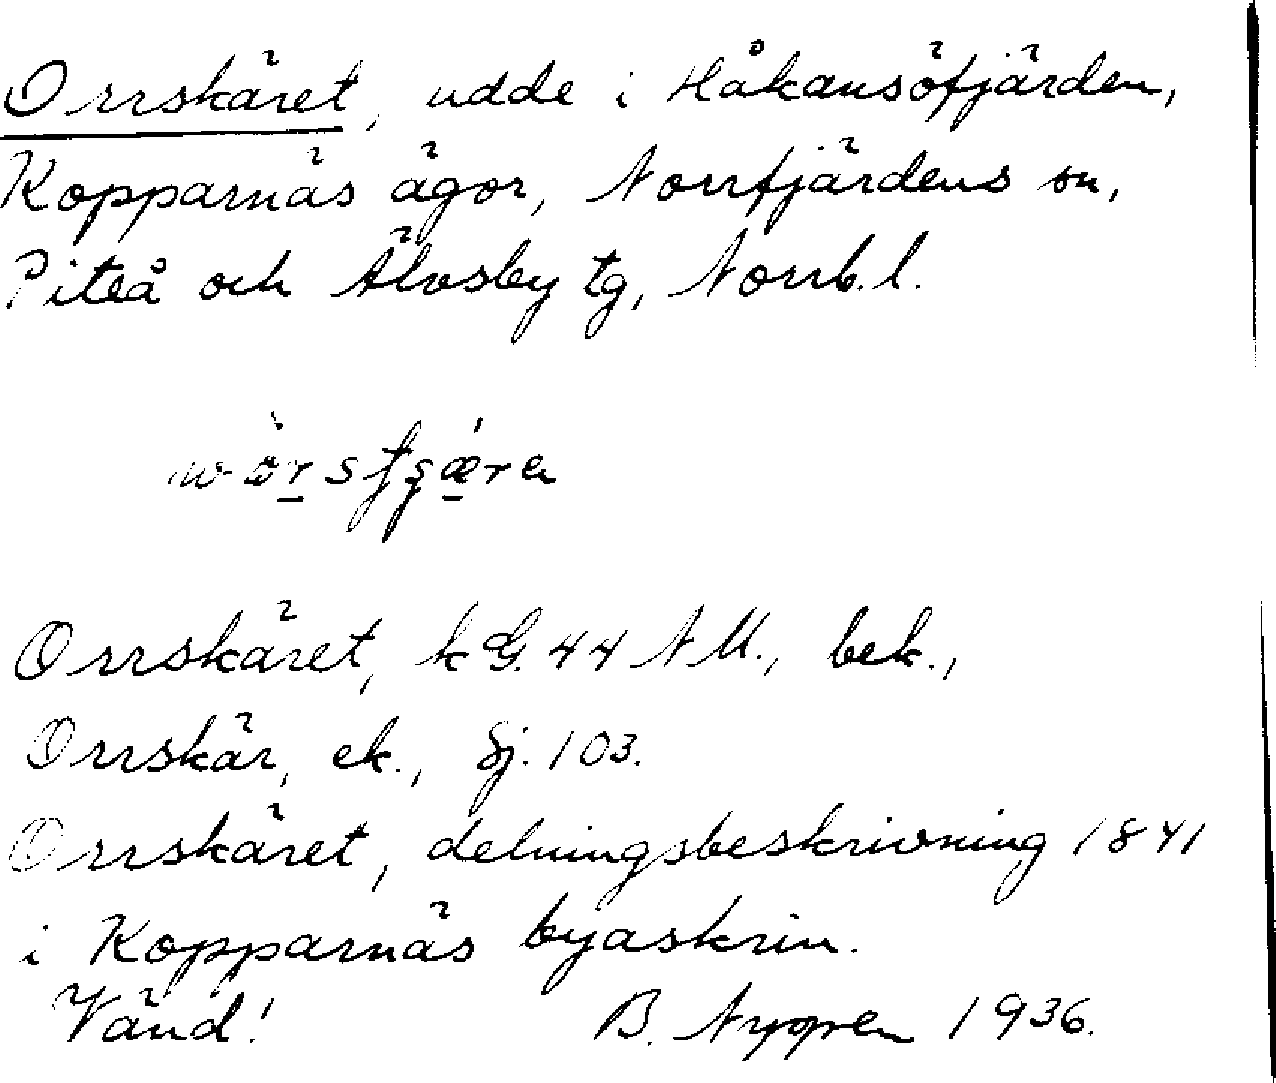 Orrskäret, udde i Håkansöfjärden,
Kopparnäs ägor, Norrfjärdens sn,
Piteå och Älvsby tg, Norrb. l.
Orrskäret, k G. 44 NM., bek.,
Orrskär, ek., Sj. 103.
Orrskäret, delningsbeskrivning 1841
i Kopparnäs byaskrin.
Vänd! B. Nygren 1936.